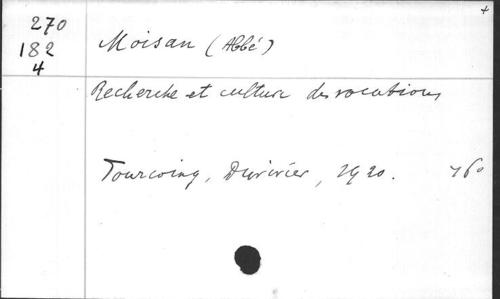 270
182
4
Moisan (Abbé)
Recherche et culture des vocations
Tourcoing, Duvivier, 1920.